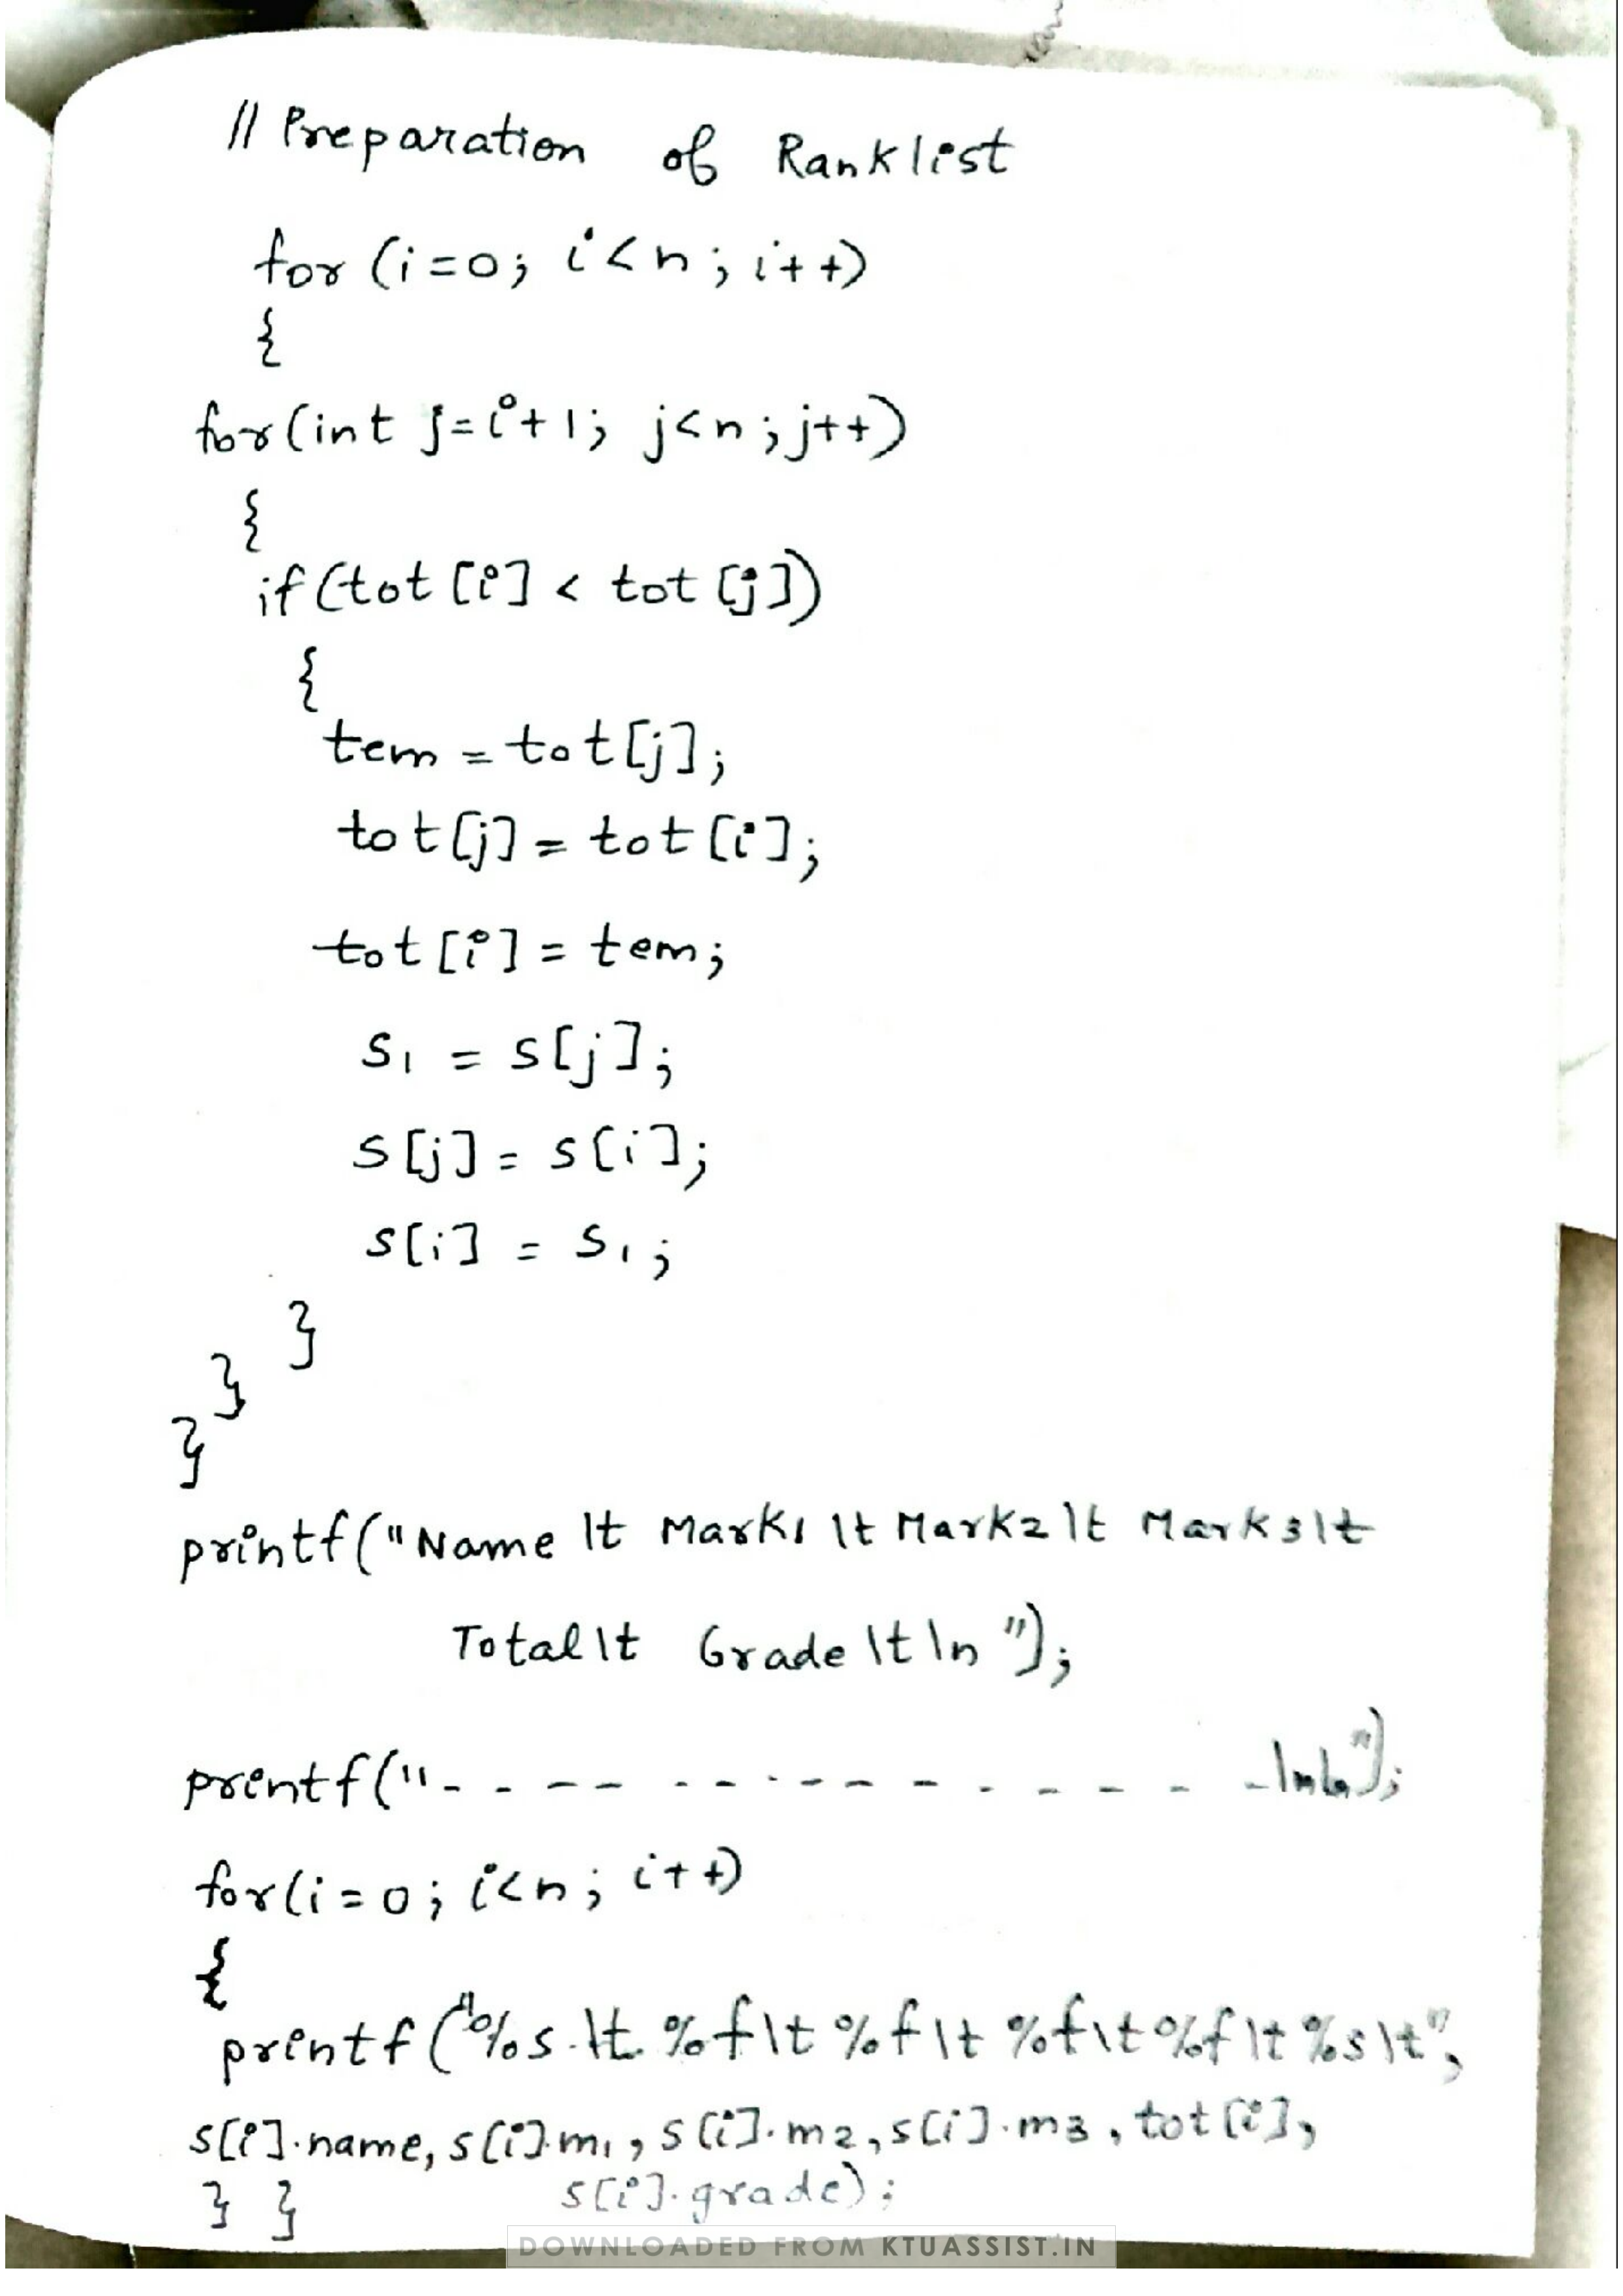 // Preparation of Ranklist
for (i=0; i<n; i++)
{
for(int j=i+1; j<n; j++)
{
if (tot [i] < tot [j])
{
tem = tot[j];
tot[j] = tot[i];
tot[i] = tem;
s1 = s[j];
s[j] = s[i];
s[i] = s1;
}
}
}
printf("Name \t Mark1 \t Mark2 \t Mark3\t
Total\t Grade \t \n ");
printf("- - - - - - - - - - - - - - - - -\n\n");
for(i=0; i<n; i++)
{
printf ("%s \t %f\t %f \t %f\t %f \t %s \t",
s[i].name, s[i].m1, s[i].m2, s[i].m3, tot[i],
s[i].grade);
} }
DOWNLOADED FROM KTUASSIST.IN